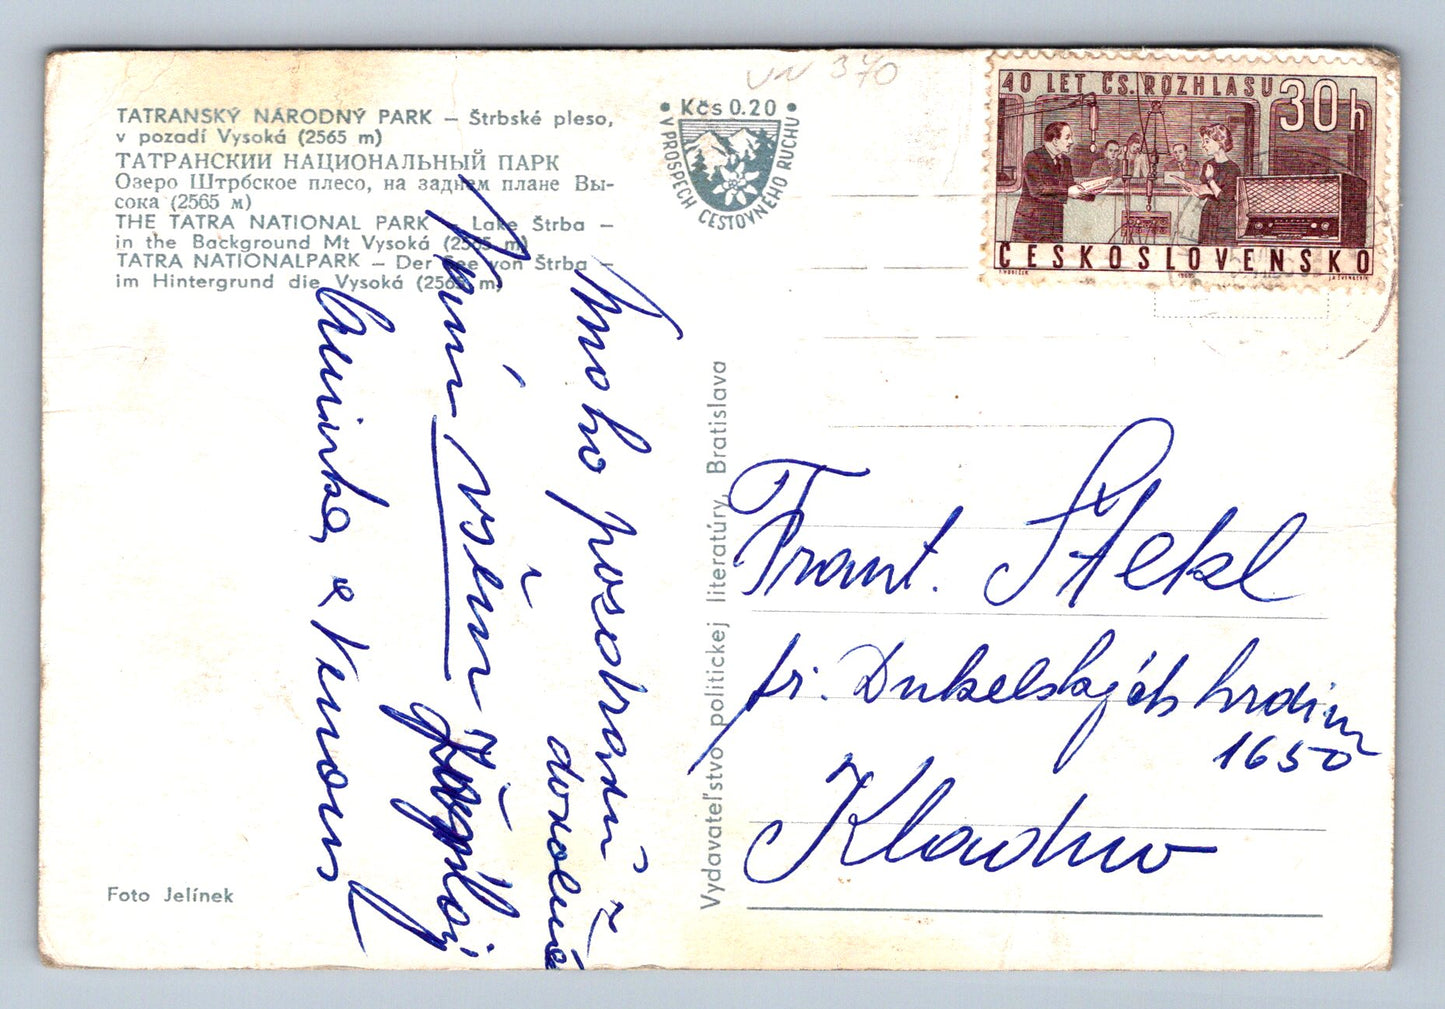 TATRANSKÝ NÁRODNÝ PARK – Štrbské pleso,
v pozadí Vysoká (2565 m)
ТАТРАНСКИИ НАЦИОНАЛЬНЫЙ ПАРК
Озеро Штрбское плесо, на заднем плане Вы-
сока (2565 м)
THE TATRA NATIONAL PARK – Lake Štrba –
in the Background Mt Vysoká (2565 m)
TATRA NATIONALPARK – Der See von Štrba –
im Hintergrund die Vysoká (2565 m)
Mnoho pozdravů z
dovolené
všem
a
Foto Jelínek
Vydavateľstvo politickej literatúry, Bratislava
VN 370
• Kčs 0.20 •
V PROSPECH CESTOVNÉHO RUCHU
40 LET ČS. ROZHLASU 30h
ČESKOSLOVENSKO
Frant. Štekl
Dukelských hrdinů
1650
Kladno